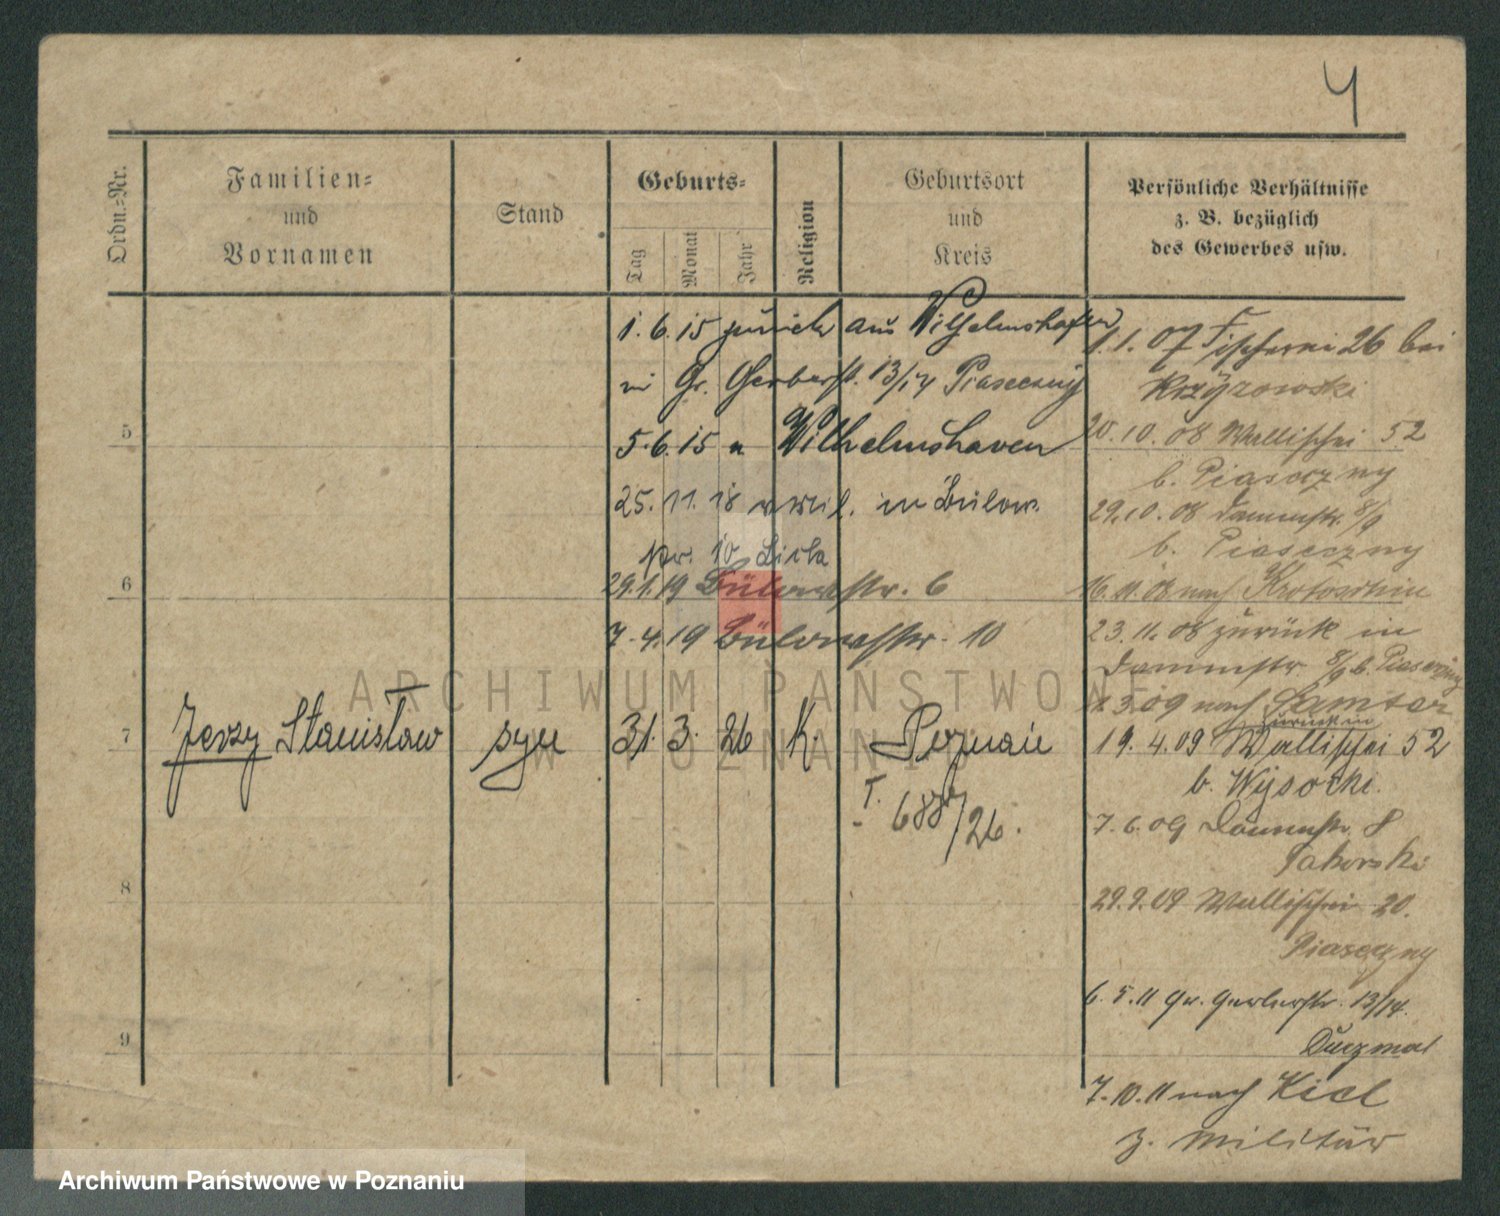 4
Ordn.-Nr.
Familien-
und
Vornamen
Stand
Geburts-
Tag
Monat
Jahr
Religion
Geburtsort
und
Kreis
Persönliche Verhältnisse
z. B. bezüglich
des Gewerbes usw.
1. 6. 15 zurück aus Wilhelmshafen
in Gr. Gerberst. 13/14 Piaseczny
5. 6. 15 n Wilhelmshaven
25. 11. 18 in Bülow
str. 10 Lista
29. 1. 19 Bülowstr. 6
7. 4. 19 Bülowstr. 10
5
6
7
Jerzy Stanisław syn 31. 3. 26 K. Poznań
T. 688/26.
8
9
1. 1. 07 Fischerei 26 bei
Krzyzowski
20. 10. 08 Wallischei 52
b. Piaseczny
29. 10. 08 Dammstr. 8/9
b. Piaseczny
16. 11. 08 nach Krotoschin
23. 11. 08 zurück in
Dammstr 8/9 b. Piaseczny
3. 09 nach Samter
zurück in
19. 4. 09 Wallischei 52
b. Wysocki.
7. 6. 09 Dammstr. 8
29. 9. 09 Wallischei 20.
Piaseczny
6. 5. 11 Gr. Gerberstr. 13/14.
Duczmal
7. 10. 11 nach Kiel
z. Militär
ARCHIWUM PAŃSTWOWE
W POZNANIU
Archiwum Państwowe w Poznaniu